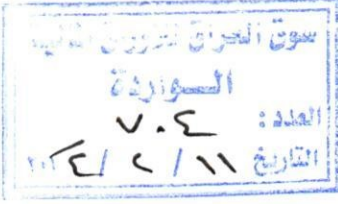 سوق العراق للاوراق المالية
الــواردة
العدد: ٧٠٤
التاريخ ١١ / ٢ / ٢٠٢٤